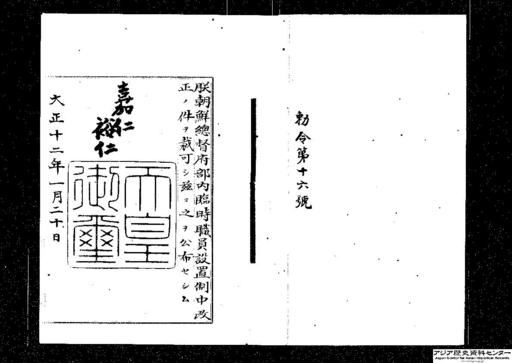 勅令第十六號
朕朝鮮總督府部內臨時職員設置制中改
正ノ件ヲ裁可シ茲ニ之ヲ公布セシム
嘉仁
裕仁
天皇
御璽
大正十二年一月二十日
アジア歴史資料センター
Japan Center for Asian Historical Records